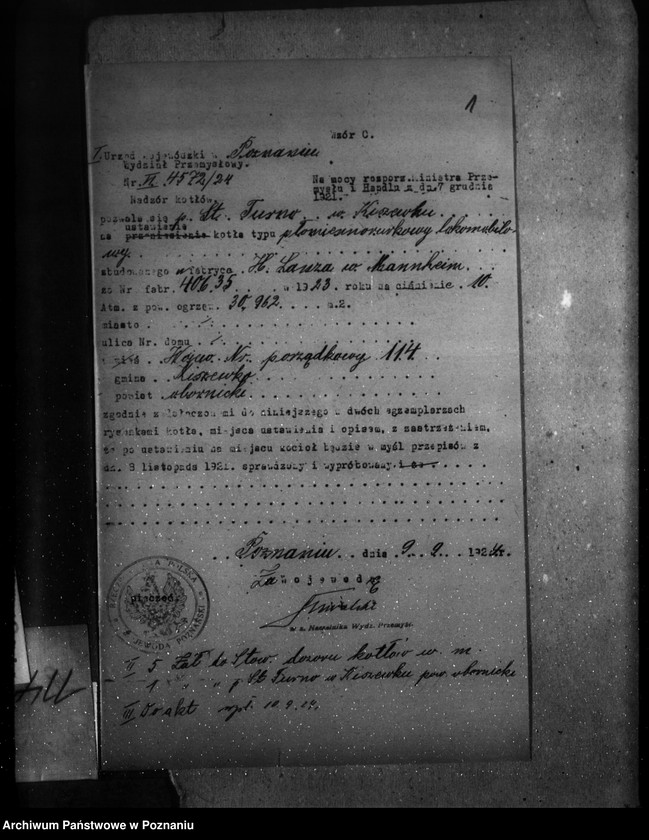 1
Wzór C.
I. Urząd Wojewódzki w Poznaniu
Wydział Przemysłowy.
Nr. VI 4572/24
Na mocy rozporz. Ministra Prze-
mysłu i Handlu z dn. 7 grudnia
1921.
Nadzór kotłów.
pozwala się p. St. Turno w Kiszewku
ustawienie
na kotła typu płomiennorurkowy lokomobilo-
wy.
zbudowanego w fabryce H. Lanza w Mannheim.
za Nr fabr. 40635 w 1923 roku na ciśnienie 10.
Atm. z pow. ogrzew. 30,962 m.2.
miasto
ulica Nr. domu
Nr. porządkowy 114
gmina Kiszewko
powiat obornicki
zgodnie z załączonymi do niniejszego w dwóch egzemplarzach
rysunkami kotła, miejsca ustawienia i opisem, z zastrzeżeniem,
że po ustawieniu na miejscu kocioł będzie w myśl przepisów z
dn. 8 listopada 1921. sprawdzony i wypróbowany.
Poznaniu dnia 9. 9. 1924r.
Za wojewodę
w z. Naczelnika Wydz. Przemysł.
pieczęć
RZECZPOSPOLITA POLSKA
WOJEWODA POZNAŃSKI
II 5 Zał. do Stow. dozoru kotłów w. m.
1 " " p. St. Turno w Kiszewku pow. obornicki
III Do akt 10.9.24.
114
Archiwum Państwowe w Poznaniu